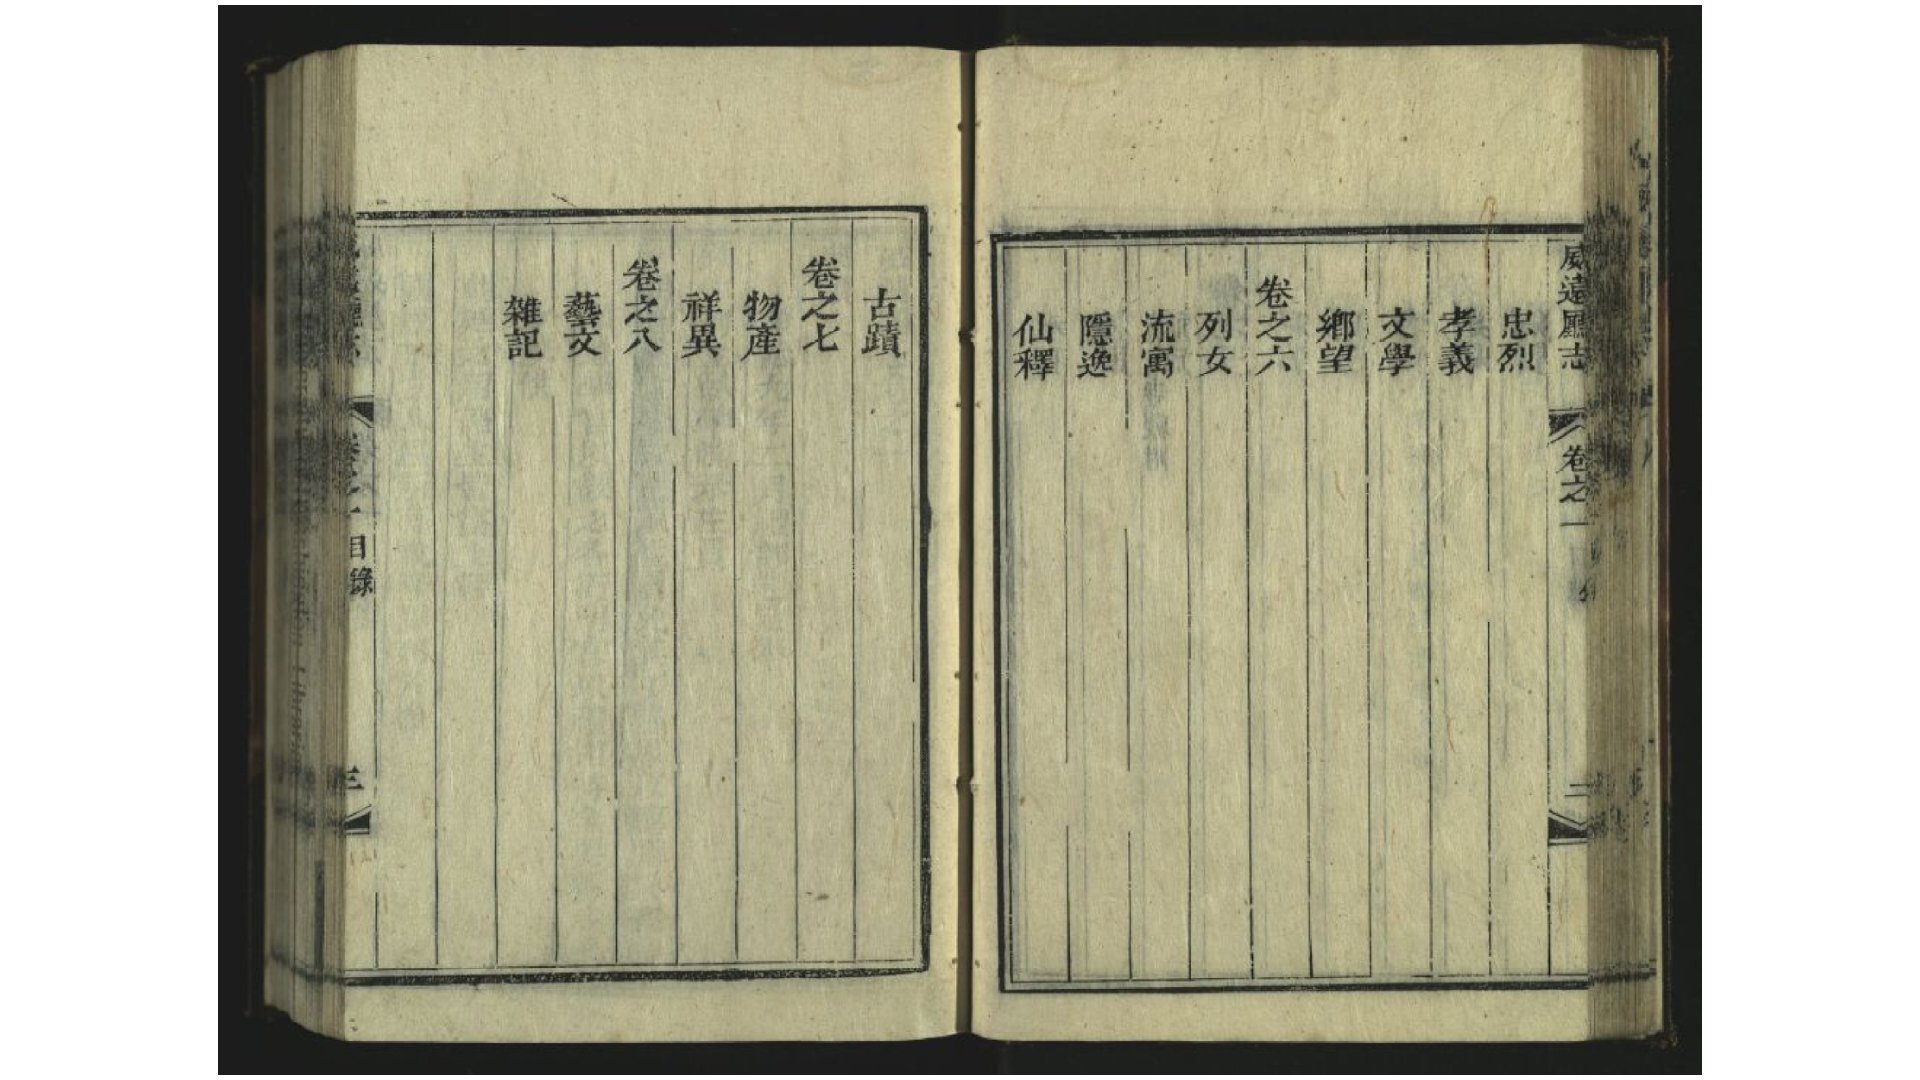 威遠廳志
卷之一
二
忠烈
孝義
文學
鄉望
卷之六
列女
流寓
隱逸
仙釋
古蹟
卷之七
物產
祥異
卷之八
藝文
雜記
卷之一
目錄
三